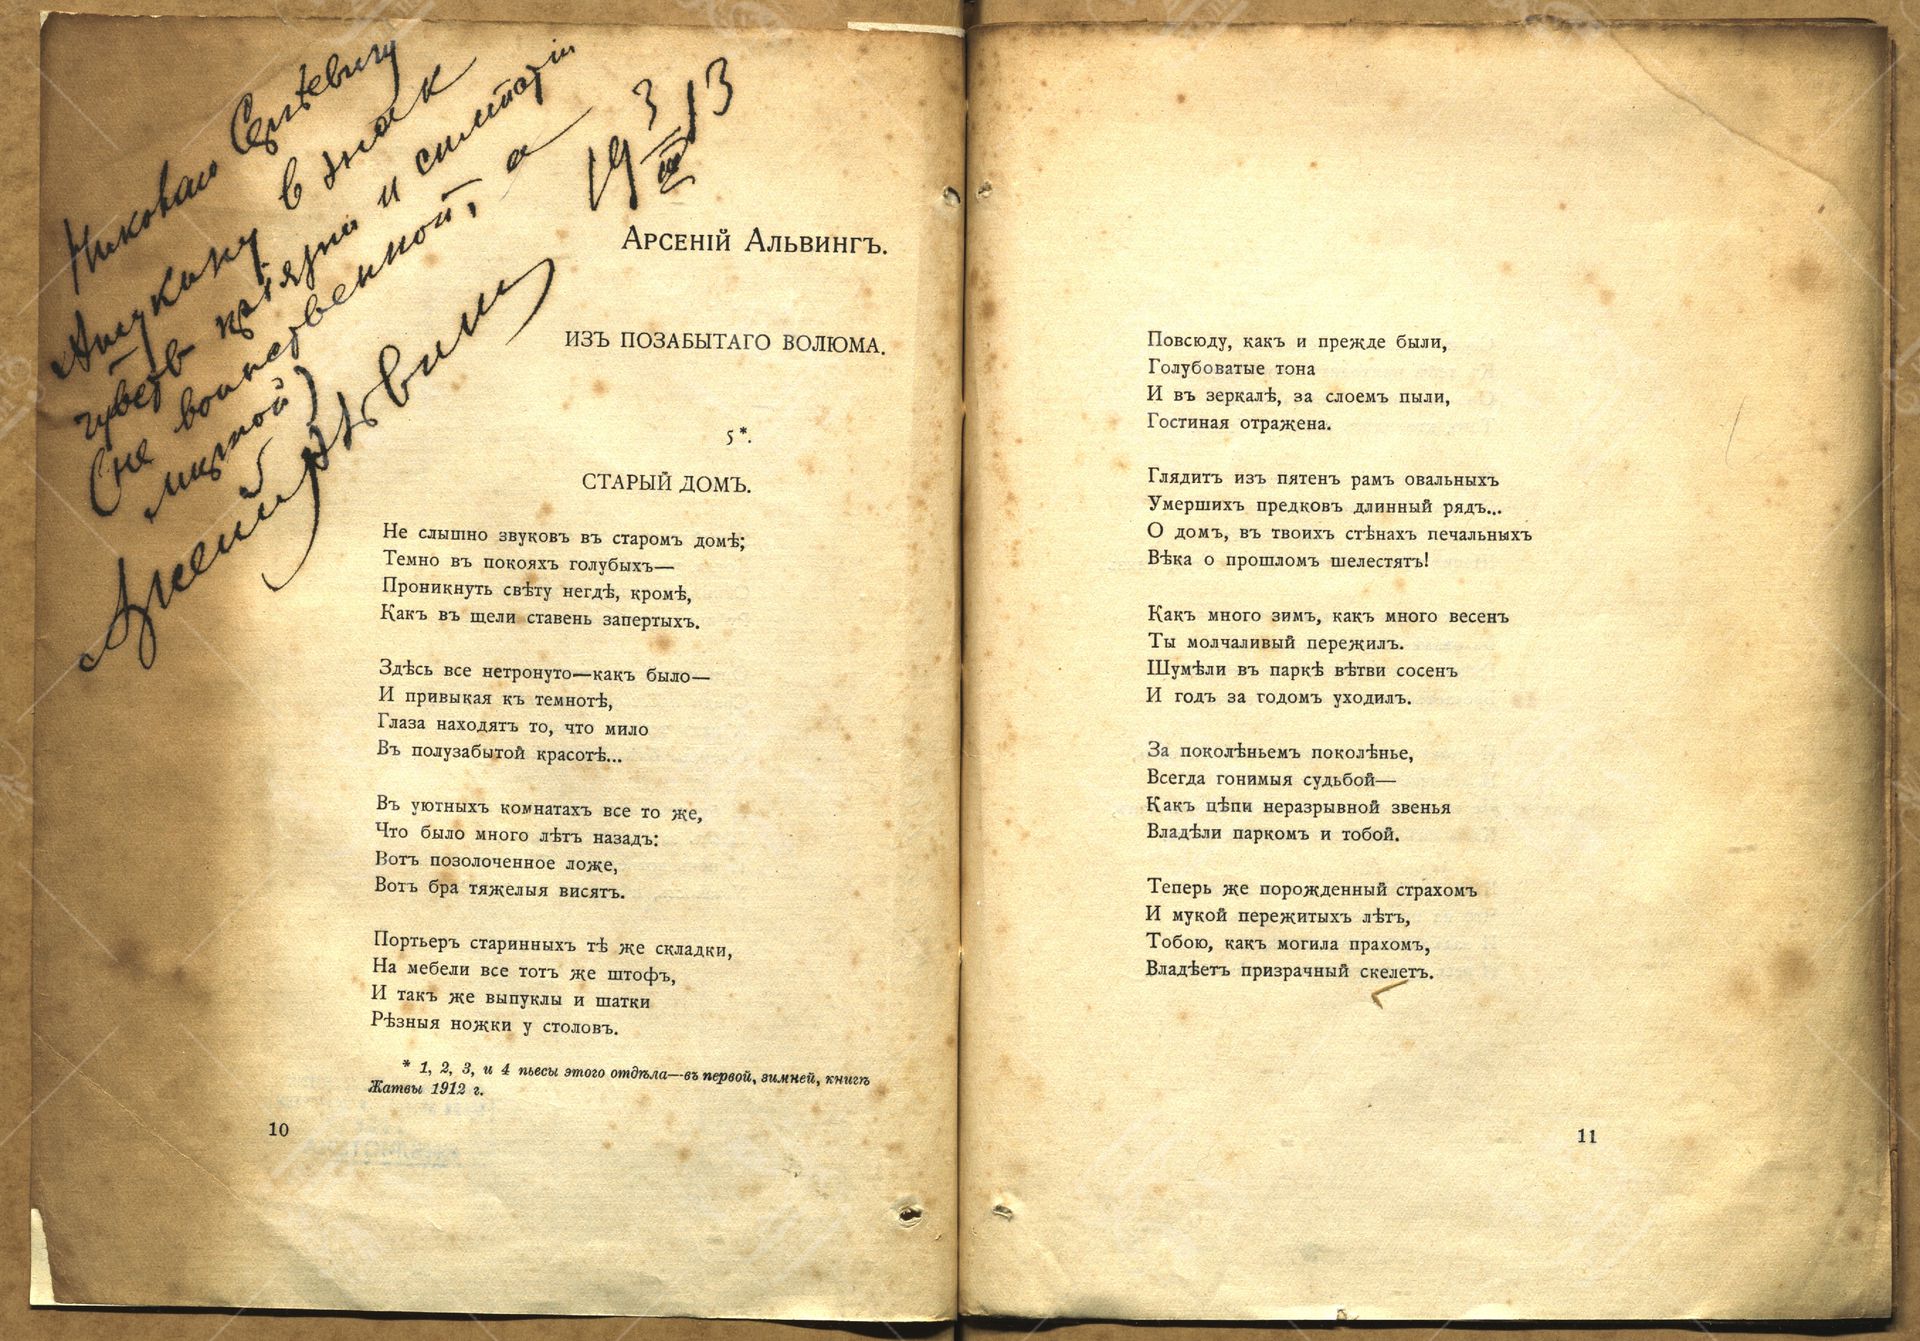 Николаю Сергѣевичу
Ашукину в знак
чувств пріязни и симпатіи
(не воинственной, а
мирной)
Арсеній Альвинг
19 3/III 13
Арсеній Альвингъ.
ИЗЪ ПОЗАБЫТАГО ВОЛЮМА.
5*.
СТАРЫЙ ДОМЪ.
Не слышно звуковъ въ старомъ домѣ;
Темно въ покояхъ голубыхъ—
Проникнуть свѣту негдѣ, кромѣ,
Какъ въ щели ставень запертыхъ.
Здѣсь все нетронуто—какъ было—
И привыкая къ темнотѣ,
Глаза находятъ то, что мило
Въ полузабытой красотѣ...
Въ уютныхъ комнатахъ все то же,
Что было много лѣтъ назадъ:
Вотъ позолоченное ложе,
Вотъ бра тяжелыя висятъ.
Портьеръ старинныхъ тѣ же складки,
На мебели все тотъ же штофъ,
И такъ же выпуклы и шатки
Рѣзныя ножки у столовъ.
* 1, 2, 3, и 4 пьесы этого отдѣла—въ первой, зимней, книгѣ
Жатвы 1912 г.
10
Повсюду, какъ и прежде были,
Голубоватые тона
И въ зеркалѣ, за слоемъ пыли,
Гостиная отражена.
Глядитъ изъ пятенъ рамъ овальныхъ
Умершихъ предковъ длинный рядъ...
О домъ, въ твоихъ стѣнахъ печальныхъ
Вѣка о прошломъ шелестятъ!
Какъ много зимъ, какъ много весенъ
Ты молчаливый пережилъ.
Шумѣли въ паркѣ вѣтви сосенъ
И годъ за годомъ уходилъ.
За поколѣньемъ поколѣнье,
Всегда гонимыя судьбой—
Какъ цѣпи неразрывной звенья
Владѣли паркомъ и тобой.
Теперь же порожденный страхомъ
И мукой пережитыхъ лѣтъ,
Тобою, какъ могила прахомъ,
Владѣетъ призрачный скелетъ.
11